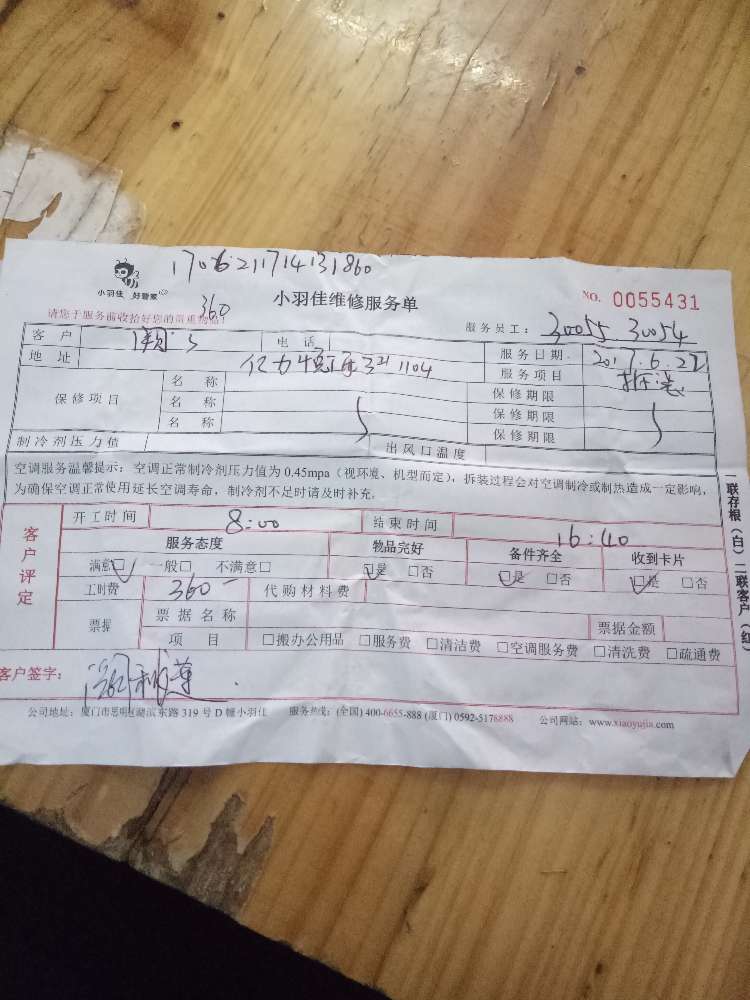 170621171431860
小羽佳 好管家
小羽佳维修服务单
NO. 0055431
请您于服务前收拾好您的贵重物品!
360
服务员工: 30055 30054
客户
电话
服务日期 2017.6.22
地址
1104
服务项目 拆装
保修项目
名称
保修期限
名称
保修期限
名称
保修期限
制冷剂压力值
出风口温度
空调服务温馨提示:空调正常制冷剂压力值为 0.45mpa(视环境、机型而定),拆装过程会对空调制冷或制热造成一定影响,
为确保空调正常使用延长空调寿命,制冷剂不足时请及时补充。
客户评定
开工时间 8:00
结束时间 16:40
服务态度
物品完好
备件齐全
收到卡片
满意□ 一般□ 不满意□
□是 □否
□是 □否
□是 □否
工时费 360
代购材料费
票据
票据名称
票据金额
项目 □搬办公用品 □服务费 □清洁费 □空调服务费 □清洗费 □疏通费
客户签字:
公司地址:厦门市思明区湖滨东路 319 号 D 幢小羽佳 服务热线:(全国) 400-6655-888 (厦门) 0592-5178888 公司网站:www.xiaoyujia.com
一联存根(白)二联客户(红)